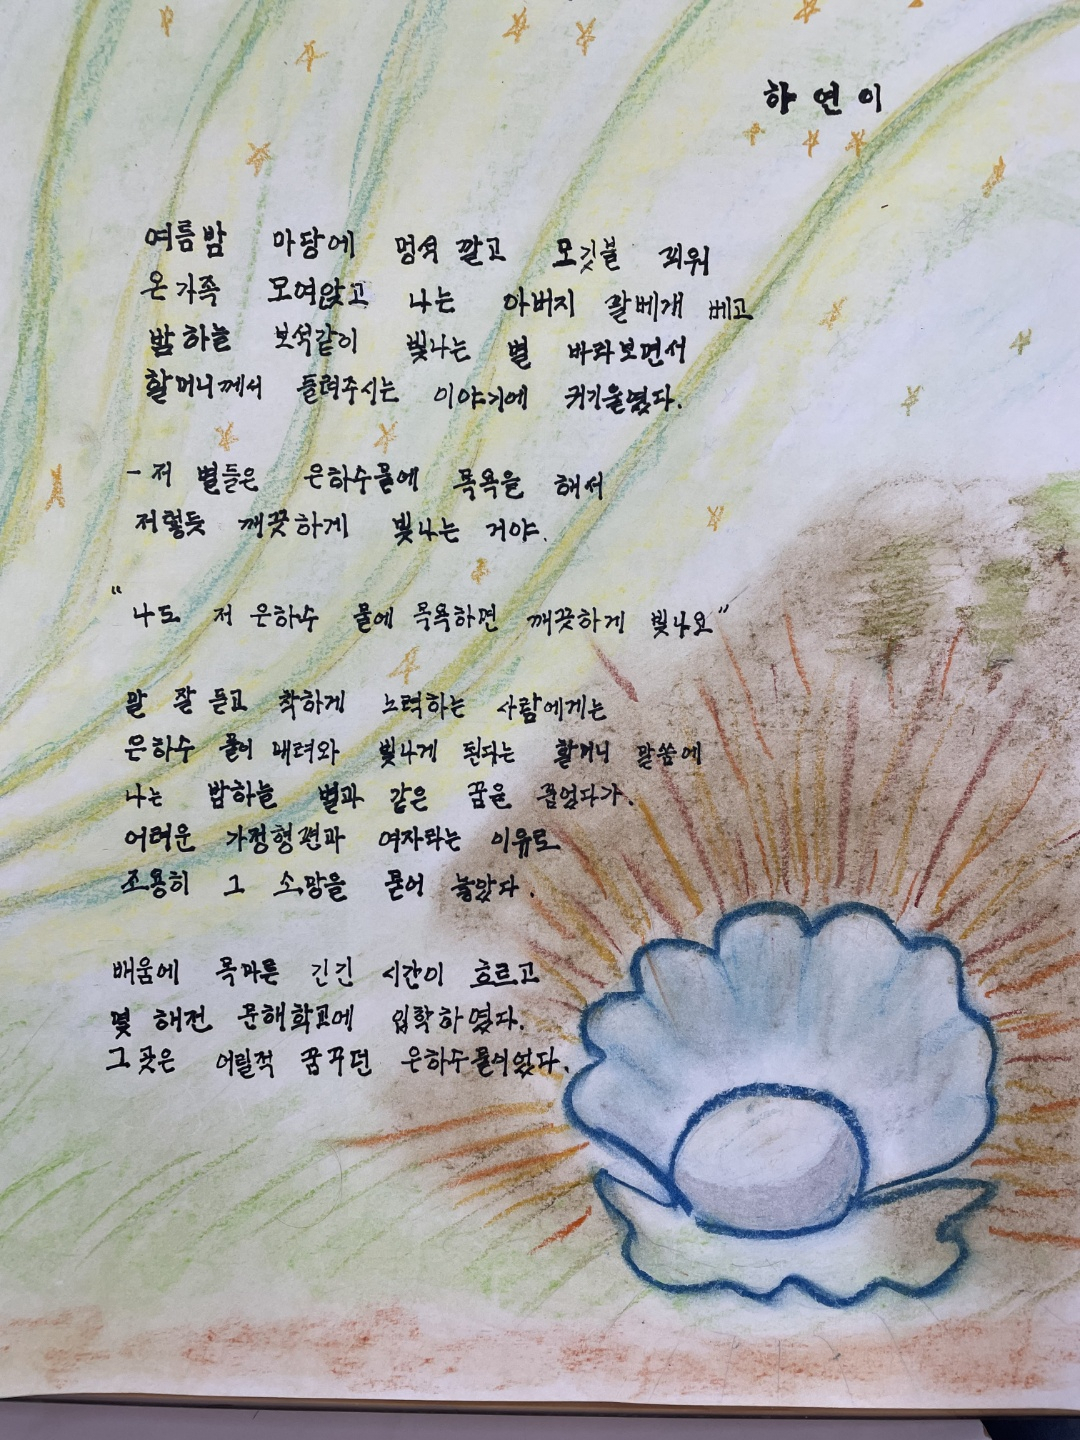 하연이
여름밤 마당에 멍석 깔고 모깃불 피워
온가족 모여앉고 나는 아버지 팔베개 베고
밤하늘 보석같이 빛나는 별 바라보면서
할머니께서 들려주시는 이야기에 귀기울였다.
- 저 별들은 은하수물에 목욕을 해서
저렇듯 깨끗하게 빛나는 거야.
"나도 저 은하수 물에 목욕하면 깨끗하게 빛나요"
말 잘 듣고 착하게 노력하는 사람에게는
은하수 물이 내려와 빛나게 된다는 할머니 말씀에
나는 밤하늘 별과 같은 꿈을 꾸었다가.
어려운 가정형편과 여자라는 이유로
조용히 그 소망을 묻어 놓았다.
배움에 목마른 긴긴 시간이 흐르고
몇 해전 문해학교에 입학하였다.
그곳은 어릴적 꿈꾸던 은하수물이었다.